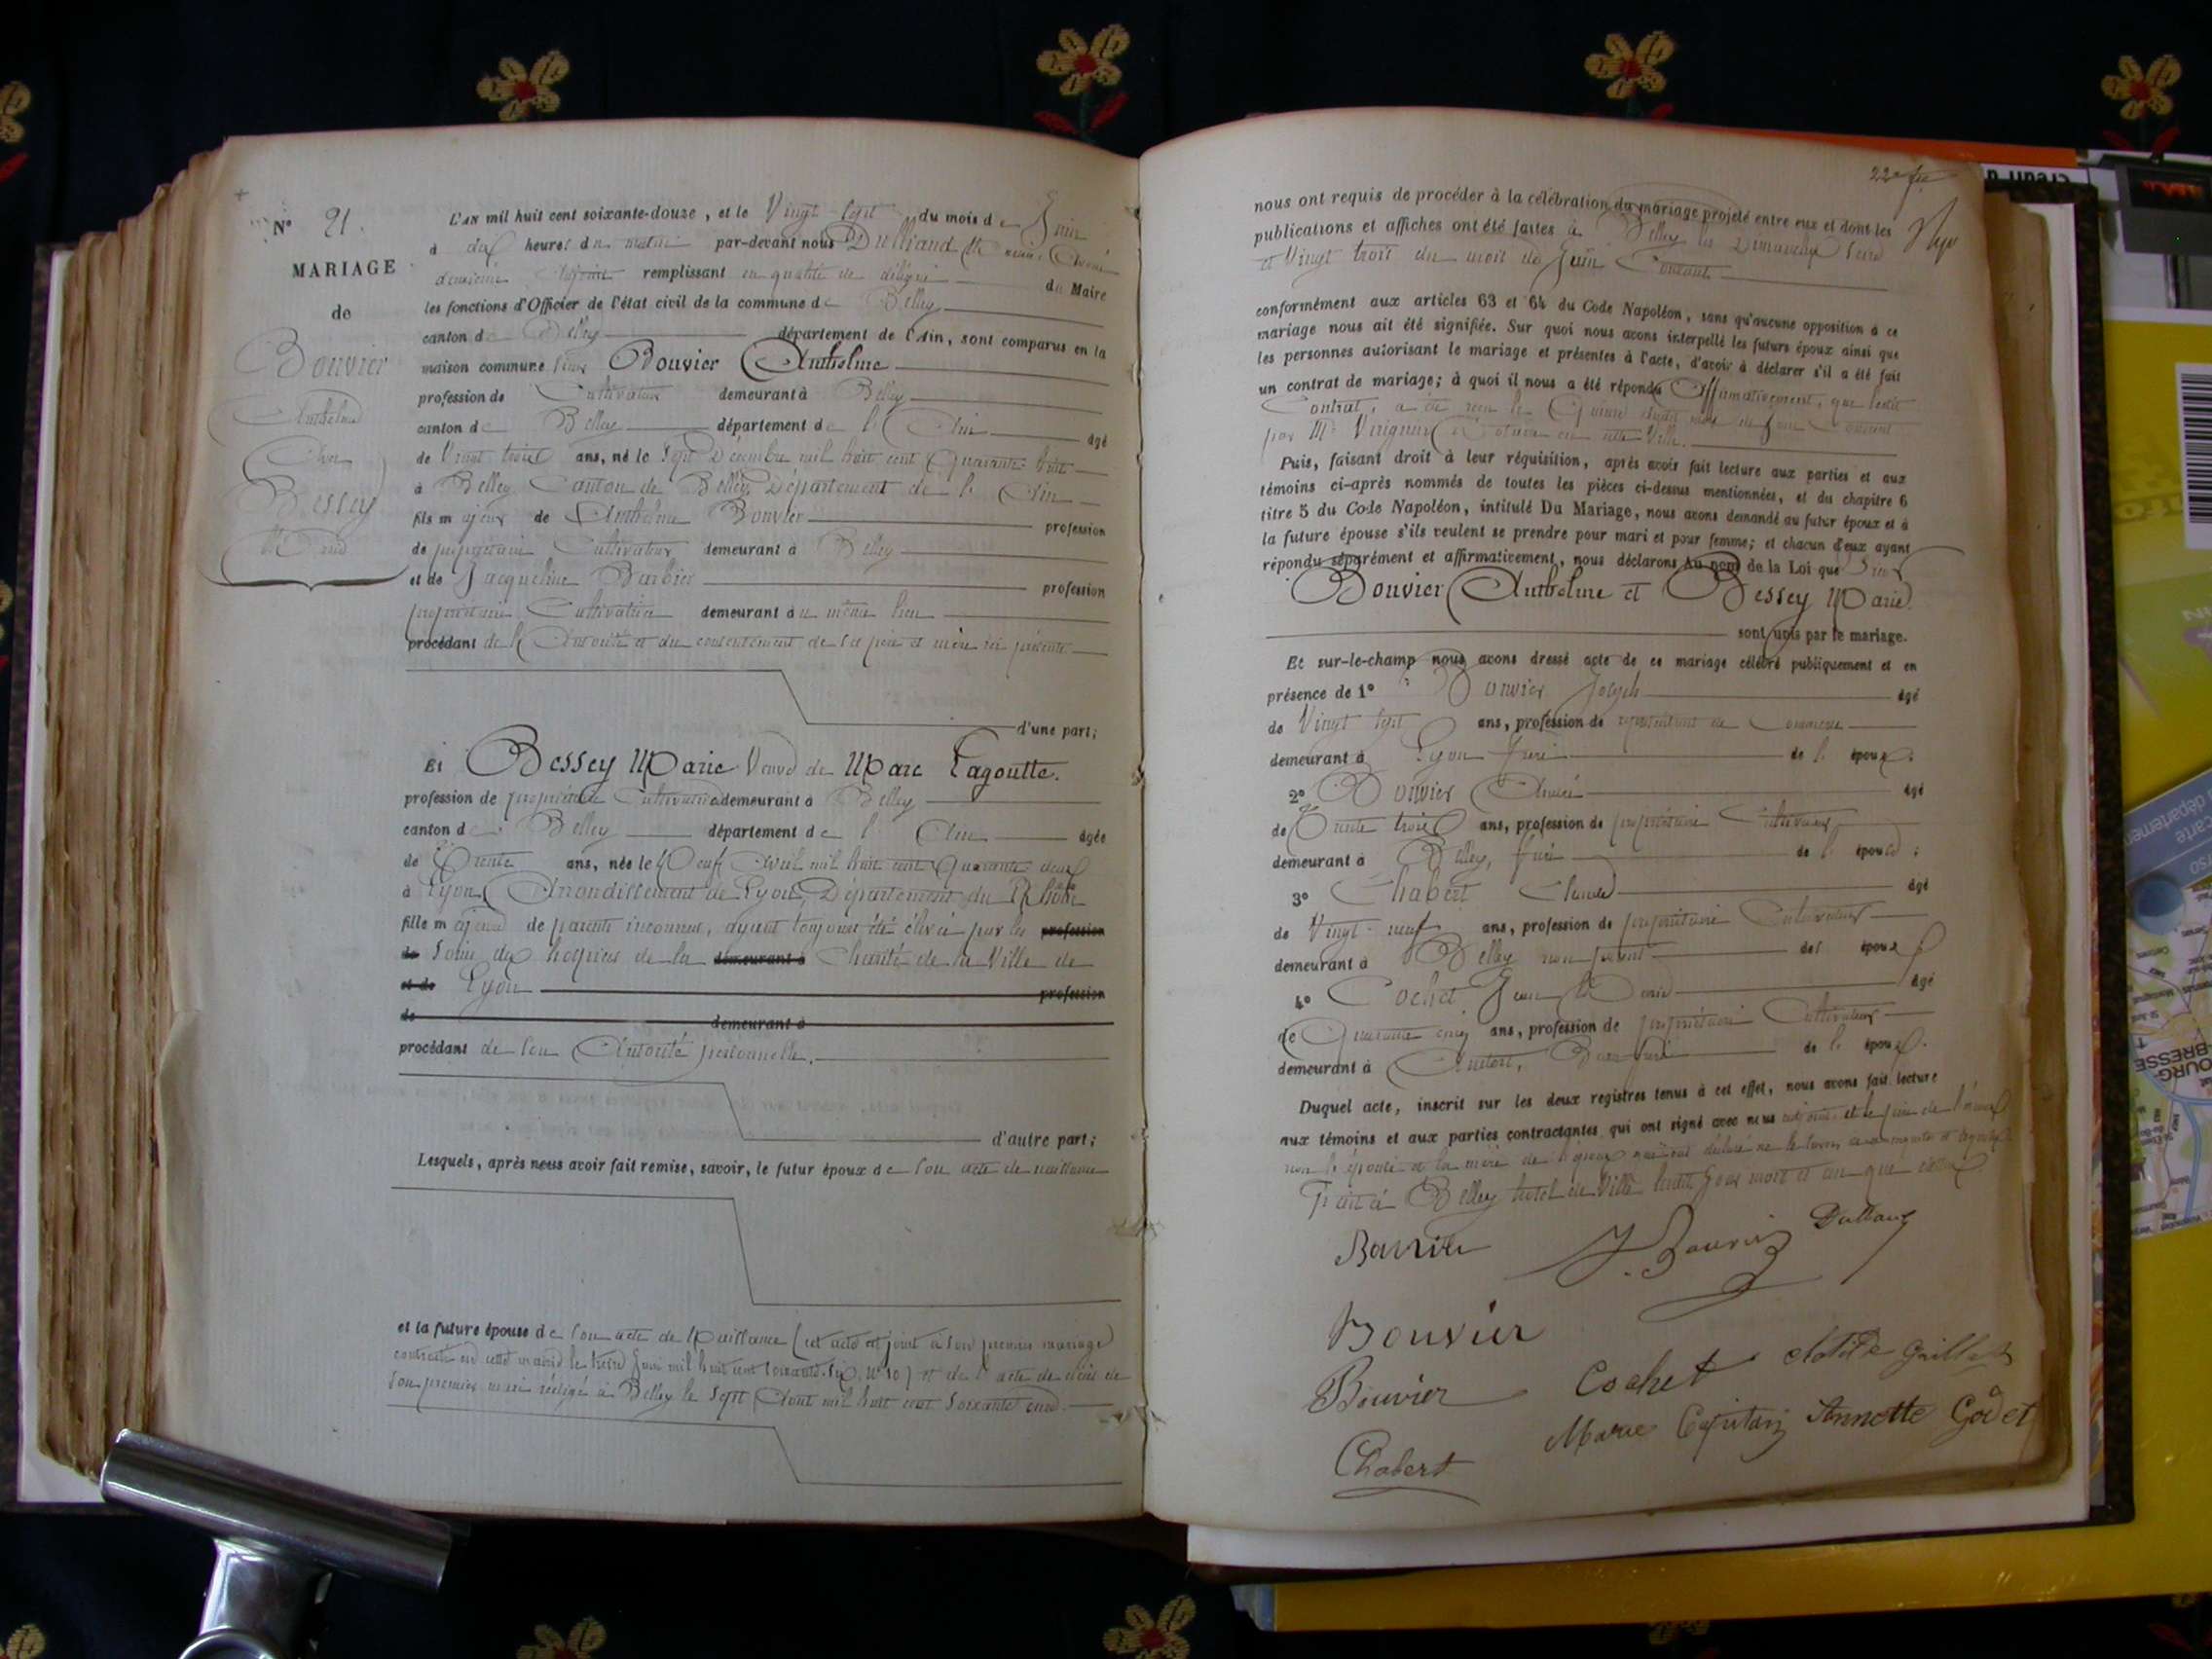 N° 21.
MARIAGE
de
Bouvier
Anthelme
Avec
Bessey
Marie
L'AN mil huit cent soixante-douze, et le Vingt Sept du mois de Juin
à dix heures du matin par-devant nous Dullaud
deuxième Adjoint remplissant en qualité de délégué du Maire
les fonctions d'Officier de l'état civil de la commune de Belley
canton de Belley département de l'Ain, sont comparus en la
maison commune Sieur Bouvier Anthelme
profession de Cultivateur demeurant à Belley
canton de Belley département de l'Ain âgé
de Vingt trois ans, né le Sept Décembre mil huit cent Quarante huit
à Belley Canton de Belley Département de l'Ain
fils majeur de Anthelme Bouvier profession
de propriétaire Cultivateur demeurant à Belley
et de Jacqueline Barbier profession
propriétaire Cultivatrice demeurant au même lieu
procédant de l'Autorité et du consentement de ses père et mère ici présents
d'une part;
Et Bessey Marie Veuve de Marc Lagoutte.
profession de propriétaire Cultivatrice demeurant à Belley
canton de Belley département de l'Ain âgée
de Trente ans, née le Neuf Avril mil huit cent Quarante deux
à Lyon Arrondissement de Lyon, Département du Rhône
fille majeure de parents inconnus, ayant toujours été élevée par les profession
de Soins des hospices de la demeurant à Charité de la Ville de
et de Lyon profession
de demeurant à
procédant de son Autorité personnelle.
d'autre part;
Lesquels, après nous avoir fait remise, savoir, le futur époux de son acte de naissance
et la future épouse de son acte de Naissance (cet acte est joint à son premier mariage)
contracté en cette mairie le treize Juin mil huit cent soixante-six, N° 10) et de l'acte de décès de
son premier mari rédigé à Belley le Sept Août mil huit cent Soixante onze.
22e fe
nous ont requis de procéder à la célébration du mariage projeté entre eux et dont les
publications et affiches ont été faites à Belley les Dimanches Seize
et Vingt trois du mois de Juin Courant
conformément aux articles 63 et 64 du Code Napoléon, sans qu'aucune opposition à ce
mariage nous ait été signifiée. Sur quoi nous avons interpellé les futurs époux ainsi que
les personnes autorisant le mariage et présentes à l'acte, d'avoir à déclarer s'il a été fait
un contrat de mariage; à quoi il nous a été répondu Affirmativement, que ledit
Contrat, a été reçu le Quinze dudit mois de Juin Courant
par Me Notaire en cette Ville.
Puis, faisant droit à leur réquisition, après avoir fait lecture aux parties et aux
témoins ci-après nommés de toutes les pièces ci-dessus mentionnées, et du chapitre 6
titre 5 du Code Napoléon, intitulé Du Mariage, nous avons demandé au futur époux et à
la future épouse s'ils veulent se prendre pour mari et pour femme; et chacun d'eux ayant
répondu séparément et affirmativement, nous déclarons Au nom de la Loi que Sieur
Bouvier Anthelme et Bessey Marie.
sont unis par le mariage.
Et sur-le-champ nous avons dressé acte de ce mariage célébré publiquement et en
présence de 1° Bouvier Joseph âgé
de Vingt Sept ans, profession de représentant de Commerce
demeurant à Lyon frère de l'époux;
2° Bouvier Aimé âgé
de Trente trois ans, profession de propriétaire Cultivateur
demeurant à Belley, de l'époux;
3° Chabert Claude âgé
de Vingt-neuf ans, profession de propriétaire Cultivateur
demeurant à Belley non parent de l'époux
4° Cochet Jean Marie âgé
de Quarante cinq ans, profession de propriétaire Cultivateur
demeurant à Andert, Beau frère de l'époux.
Duquel acte, inscrit sur les deux registres tenus à cet effet, nous avons fait lecture
aux témoins et aux parties contractantes qui ont signé avec nous adjoint et le père de l'époux
non l'épouse et la mère de l'époux qui ont déclaré ne le savoir,
Fait à Belley hotel de Ville lesdits Jour mois et an que dessus
Bouvier J. Bouvier Dullaud
Bouvier
Bouvier Cochet Clotilde Gaillard
Chabert Marie Capitan Annette Godet